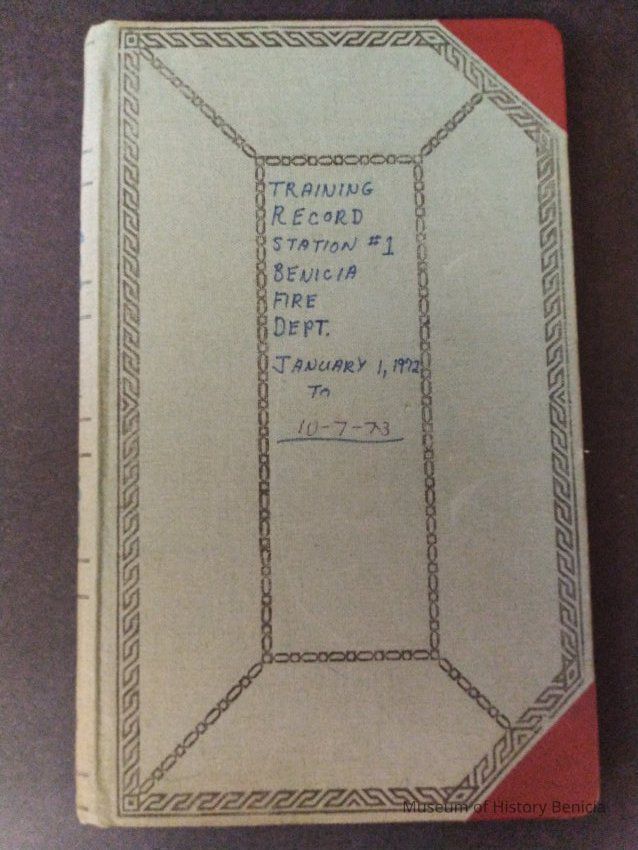 TRAINING
RECORD
STATION #1
BENICIA
FIRE
DEPT.
JANUARY 1, 1972
TO
10-7-73
Museum of History Benicia